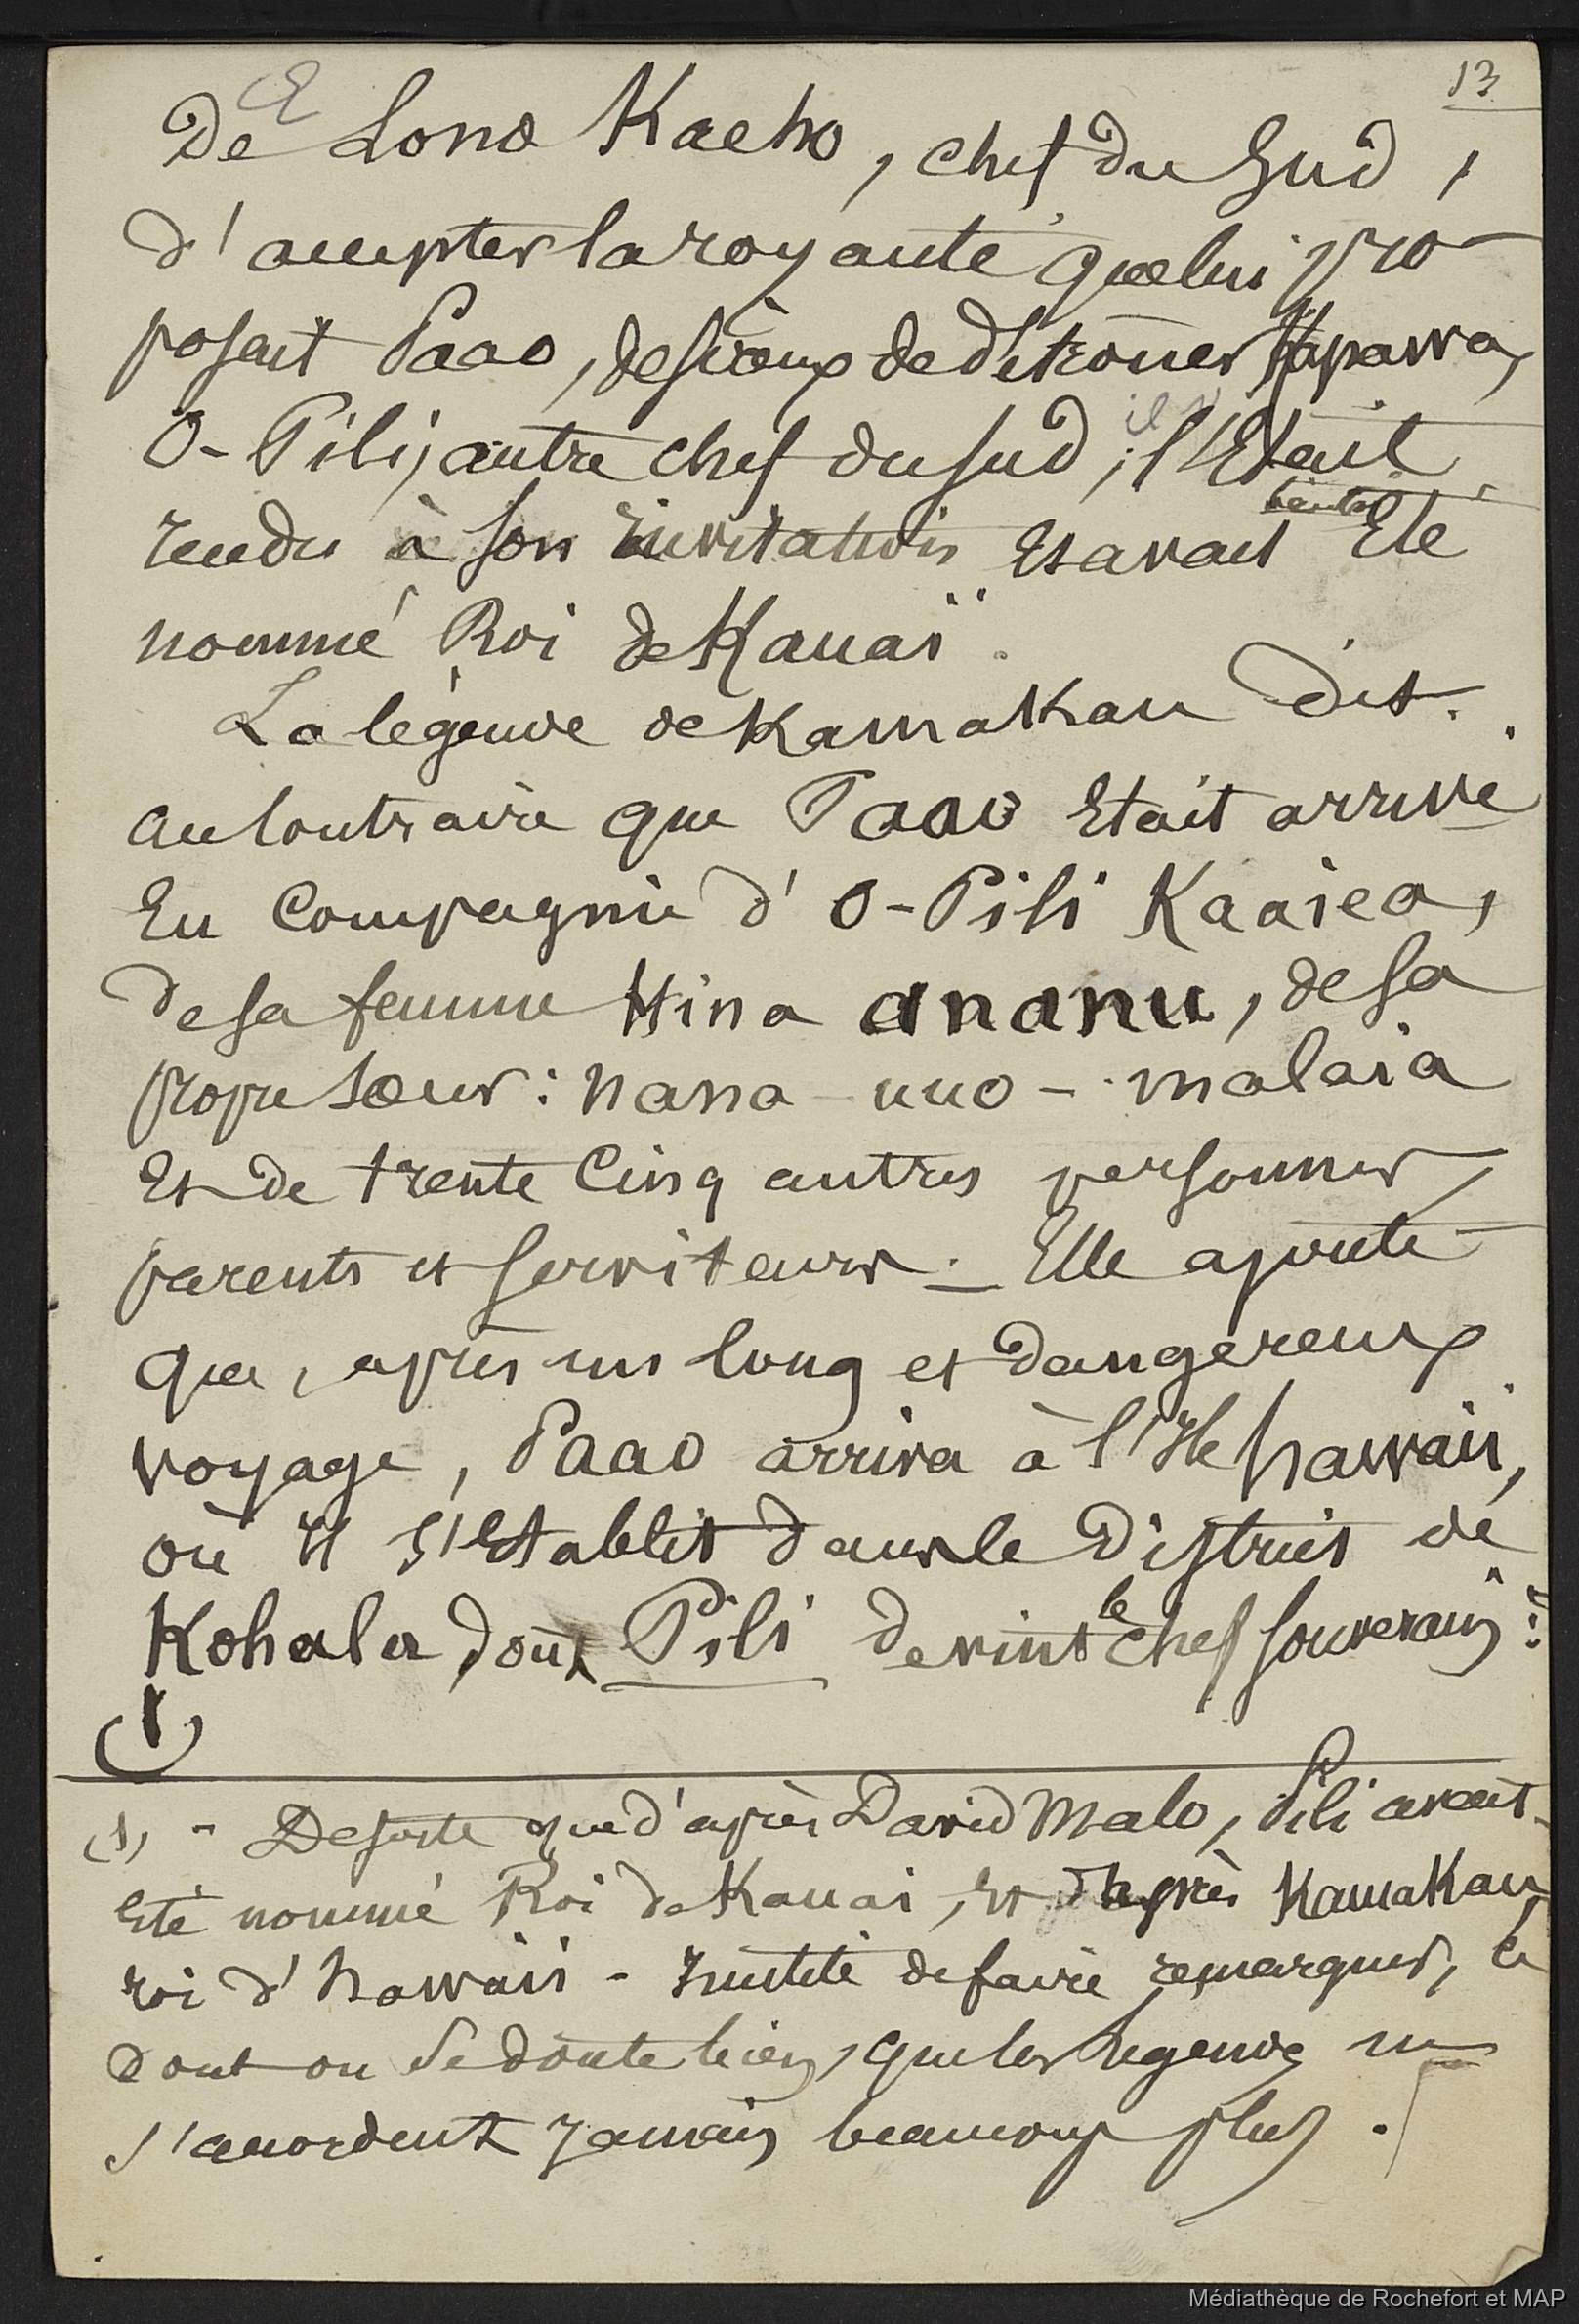 13
De Lono Kaeho, chef du Sud,
d'accepter la royauté que lui pro-
posait Paao, désireux de détrôner Kapawa,
O-Pili, autre chef du sud, s'était
rendu à son invitation et avait bientôt été
nommé Roi de Kauaï.
La légende de Kamakau dit
au contraire que Paao était arrivé
en compagnie d'O-Pili Kaaiea,
de sa femme Hina ananu, de sa
propre soeur : Nana-uuo-malaia
et de trente cinq autres personnes,
parents et serviteurs. _ Elle ajoute
que, après un long et dangereux
voyage, Paao arriva à l'Ile hawaii,
où il s'établit dans le district de
Kohala dont Pili devint le chef souverain :
(1)
(1) - De sorte que d'après David Malo, Pili avait
été nommé Roi de Kauai, et d'après Kamakau,
roi d'hawaii - Inutile de faire remarquer, ce
dont on se doute bien, que les légendes ne
s'accordent jamais beaucoup plus.
Médiathèque de Rochefort et MAP